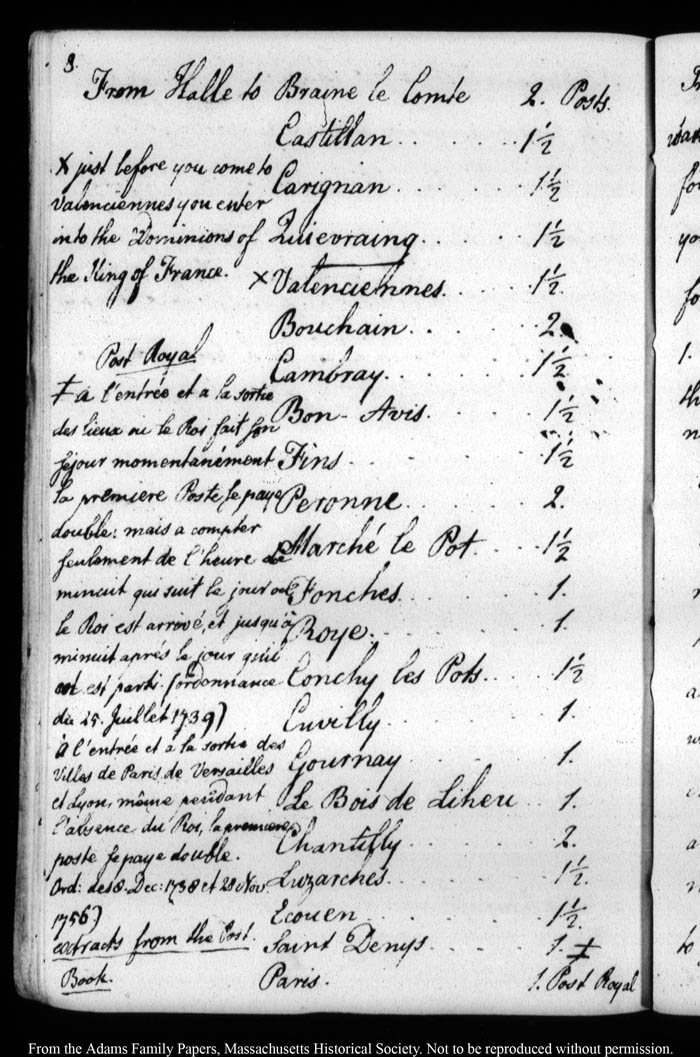 8.
From Halle to Braine le Comte 2. Posts.
Castillan 1½
Carignan 1½
Quievraing 1½
× Valenciennes 1½.
Bouchain 2.
Cambray 1½
Bon-Avis 1½
Fins 1½
Peronne 2.
Marché le Pot 1½
Fonches 1.
Roye 1.
Conchy les Pots 1½
Cuvilly 1.
Gournay 1.
Le Bois de Liheu 1.
Chantilly 2.
Luzarches 1½.
Ecouen 1½.
Saint Denys 1. ‡
Paris. 1. Post Royal
× just before you come to
Valenciennes you enter
into the Dominions of
the King of France.
Post Royal
‡ a l'entrée et a la sortie
des lieux ou le Roi fait son
sejour momentanément
la premiere Poste se paye
double: mais a compter
seulement de l'heure de
minuit qui suit le jour ou
le Roi est arrivé, et jusqu'à
minuit aprés le jour qu'il
est parti. (ordonnance
du 25. Juillet 1739)
à l'entrée et à la sortie des
Villes de Paris, de Versailles
et Lyon, même pendant
l'absence du Roi, la premiere
poste se paye double.
Ord: des 8. Dec: 1738 et 28 Nov
1756)
extracts from the Post
Book.
From the Adams Family Papers, Massachusetts Historical Society. Not to be reproduced without permission.